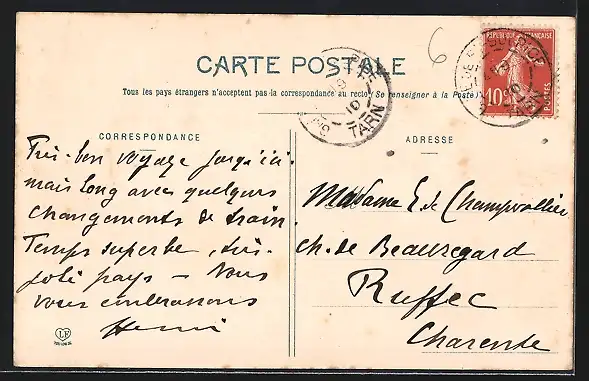 CARTE POSTALE
Tous les pays étrangers n'acceptent pas la correspondance au recto (Se renseigner à la Poste)
6
RÉPUBLIQUE FRANÇAISE
10
POSTES
TARN
10
TARN
CORRESPONDANCE
Très bon voyage jusqu'ici
mais long avec quelques
changements de train.
Temps superbe, très
joli pays – Nous
vous embrassons
Henri
LF
ADRESSE
Madame E. de Champvallier
ch. de Beauregard
Ruffec
Charente